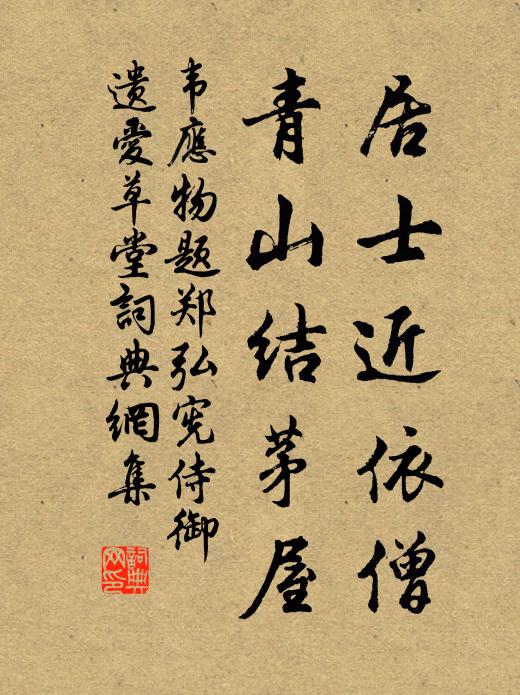 居士近依僧
青山结茅屋
韦應物题郑弘宪侍御
遗爱草堂詞典網集
詞典
网印